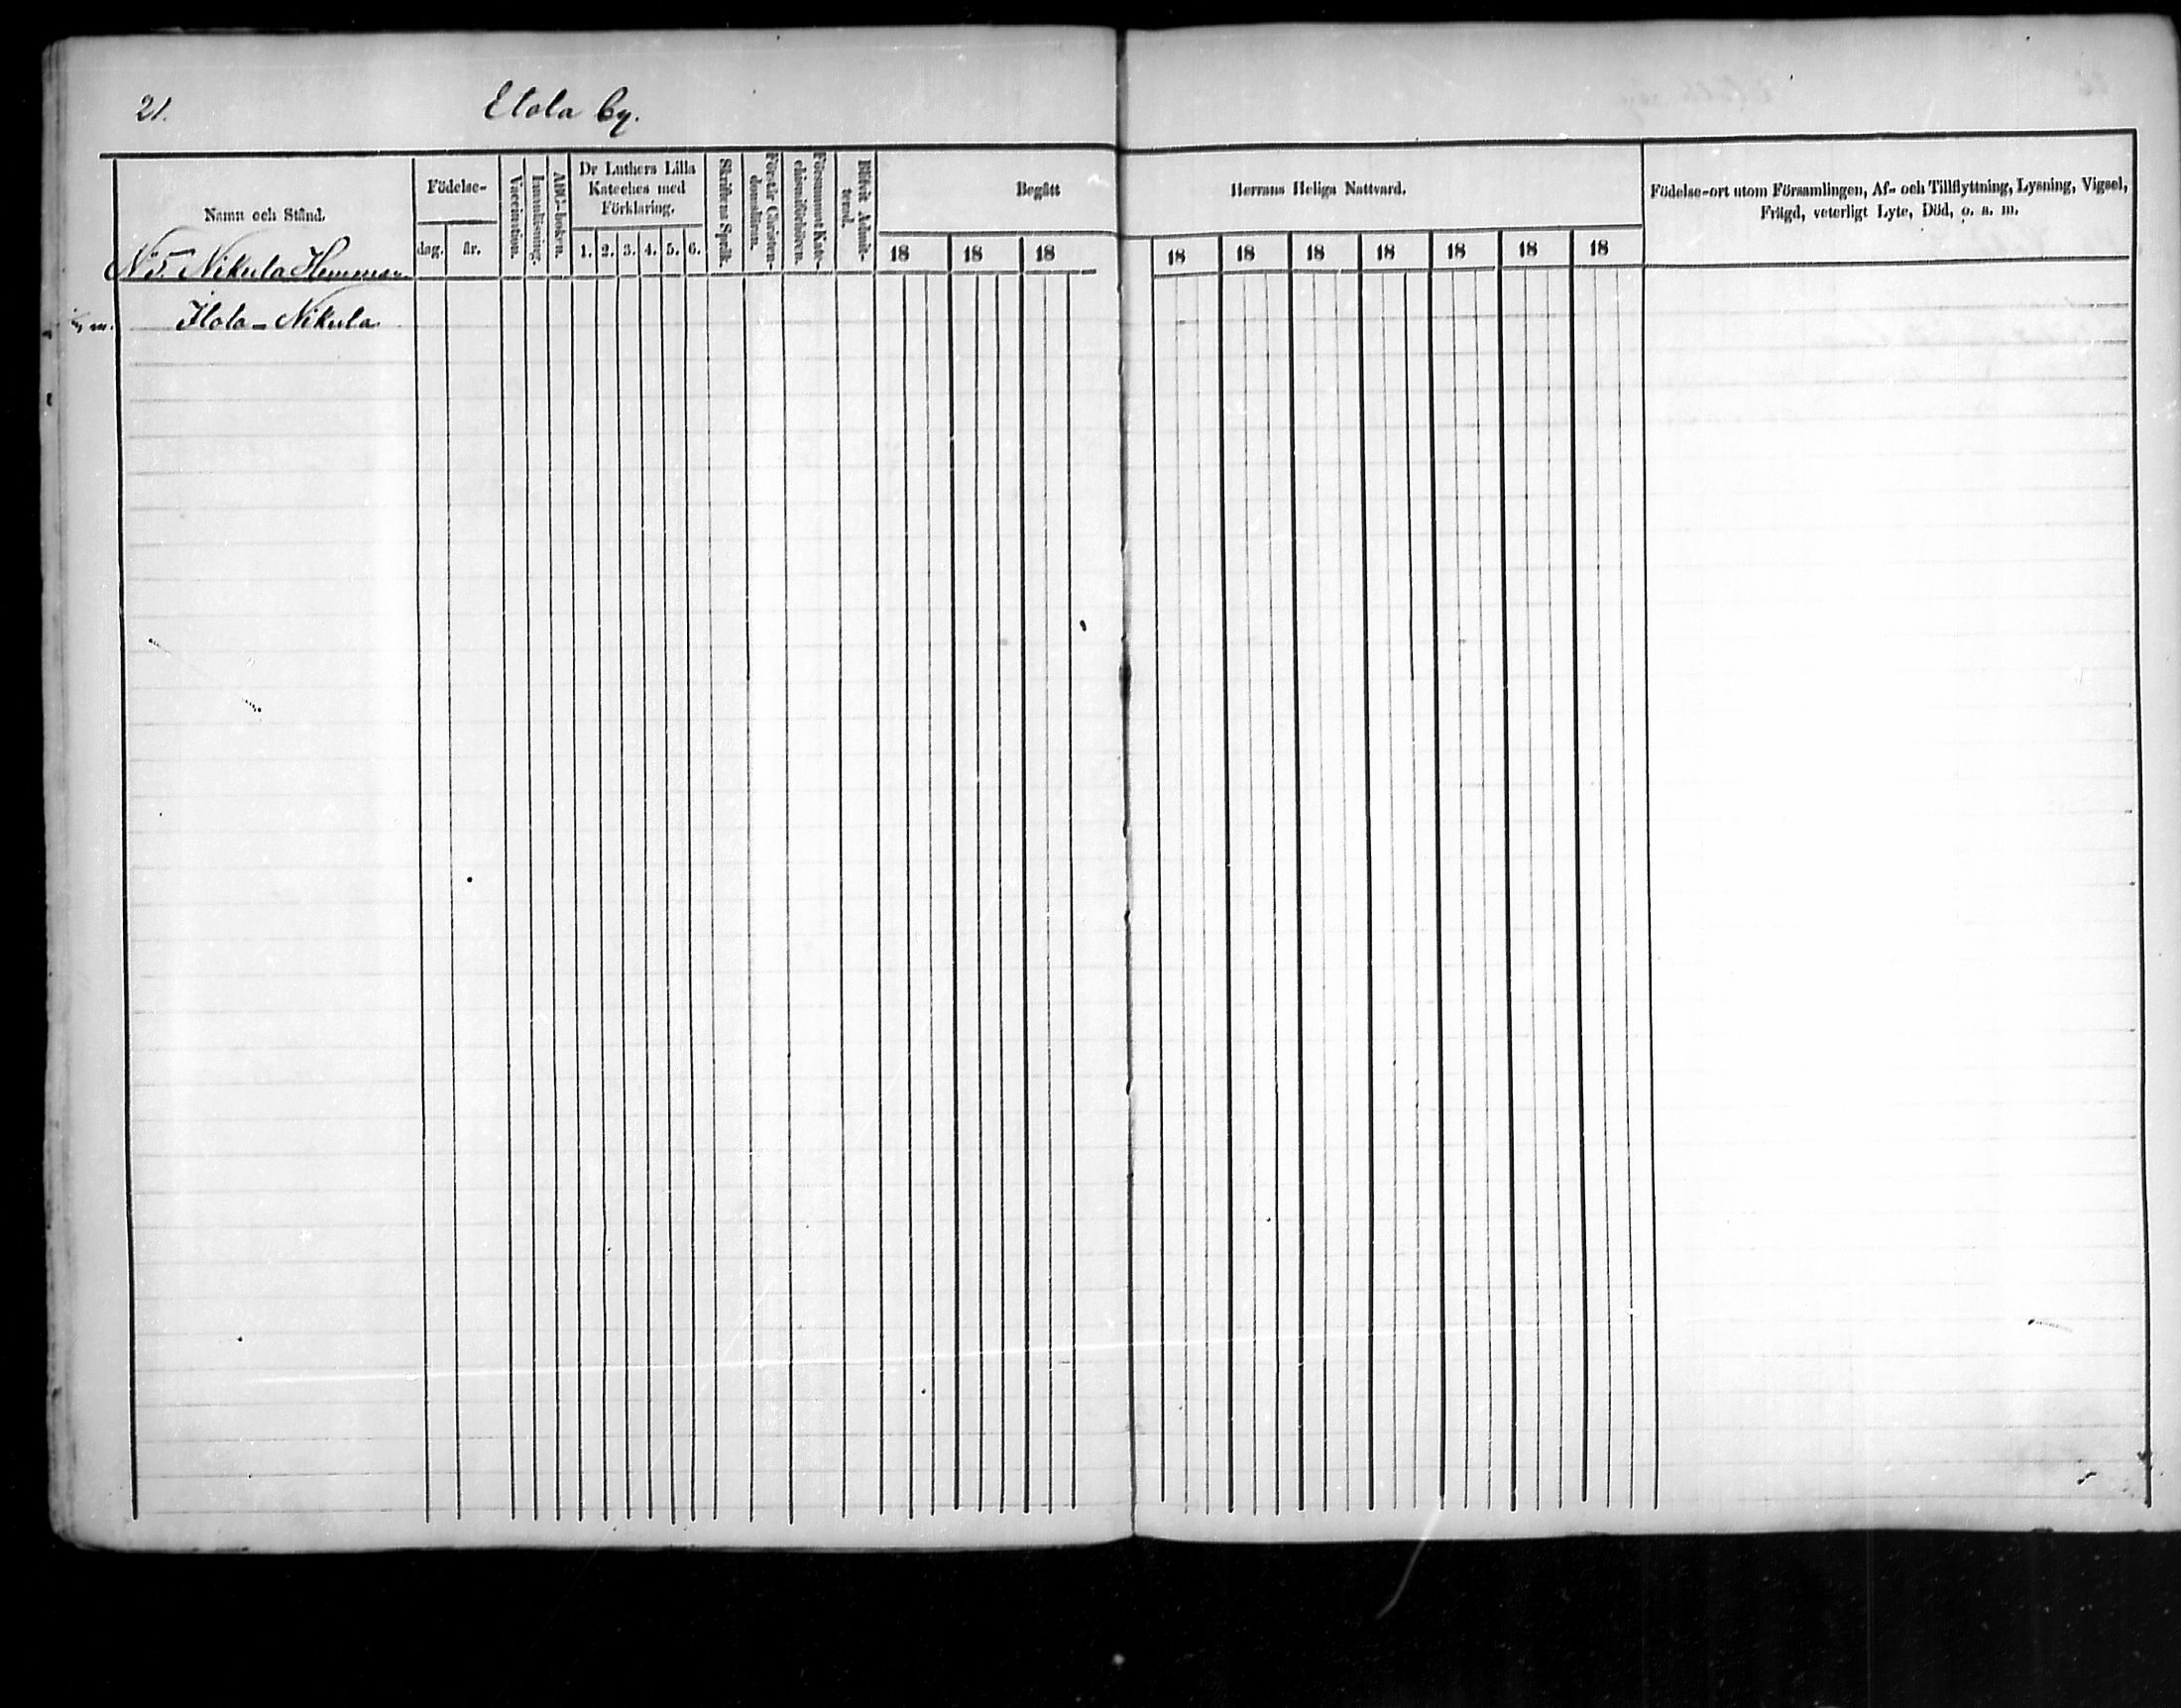 21.
Elola by.
Namn och Stånd.
Födelse-
dag. år.
Vaccination.
Innanläsning.
ABC-boken.
Dr Luthers Lilla
Kateches med
Förklaring.
1. 2. 3. 4. 5. 6.
Skriftens Språk.
Förstår Christen-
domsläran.
Försummat Kate-
chismiförhören.
Blifvit Admit-
terad.
Begått
Herrans Heliga Nattvard.
18 18 18 18 18 18 18 18 18 18
Födelse-ort utom Församlingen, Af- och Tillflyttning, Lysning, Vigsel,
Frägd, veterligt Lyte, Död, o. s. m.
N:o 5 Nikula Hemman
m. Ilola-Nikula